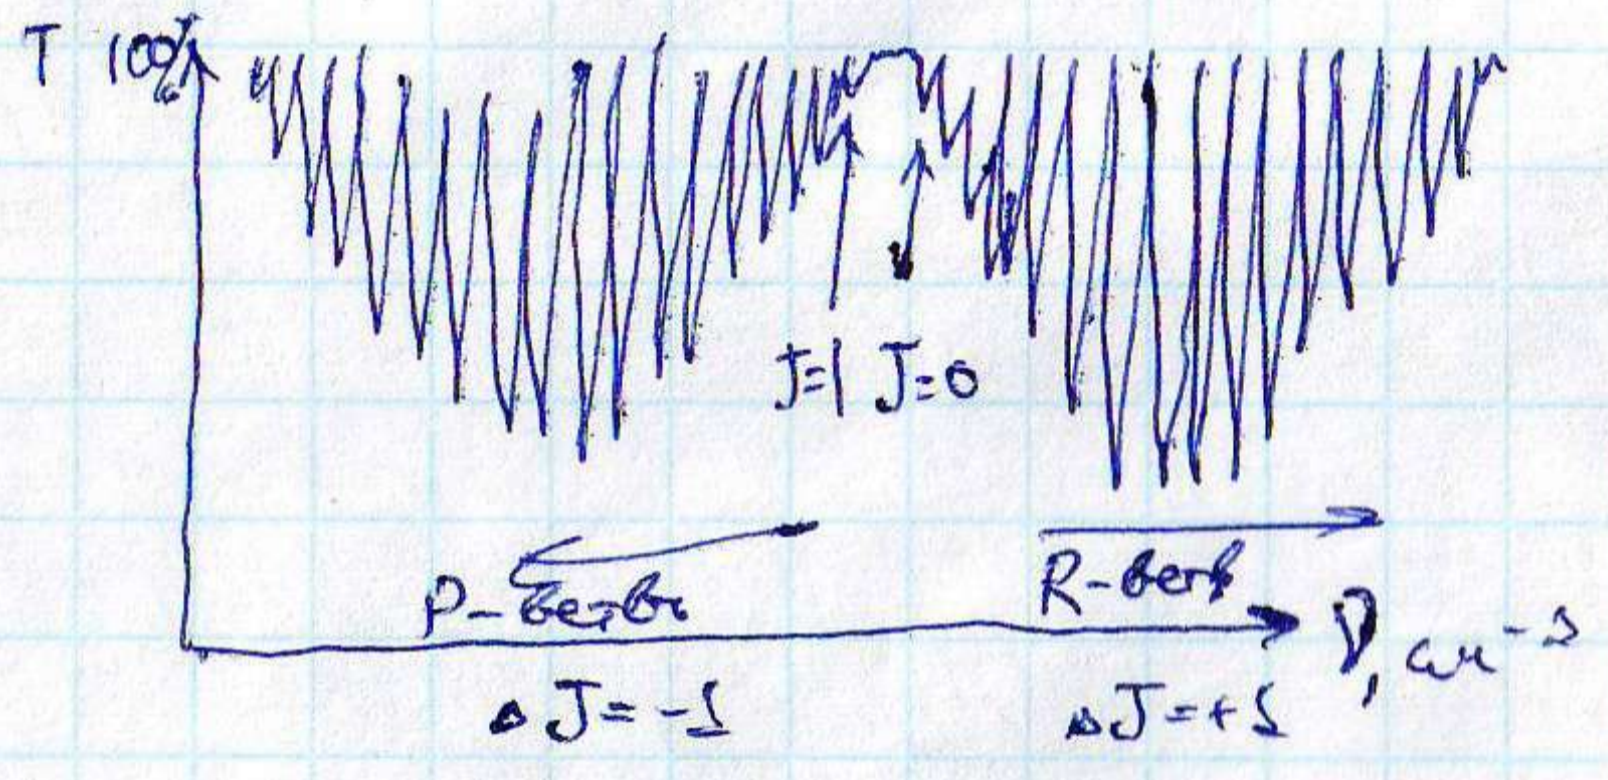 T 100%
J=1 J=0
P-ветвь
R-ветвь
ν, см⁻¹
ΔJ=-1
ΔJ=+1